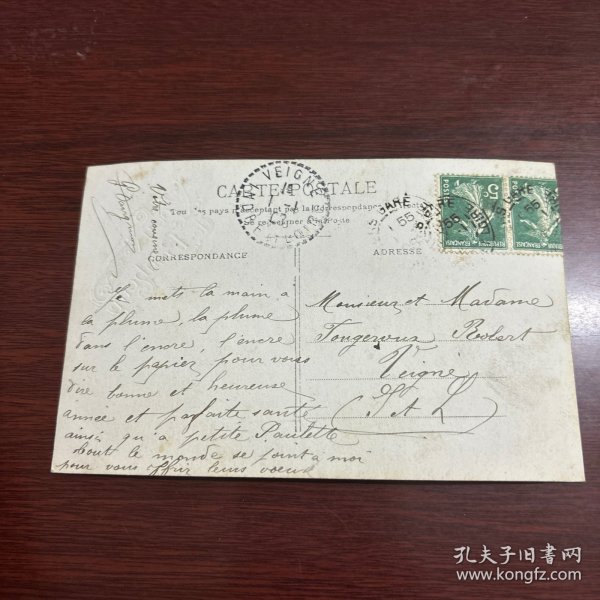 CARTE POSTALE
Tous les pays n'acceptent pas la Correspondance
CORRESPONDANCE
ADRESSE
VEIGNÉ
5
POSTES
RÉPUBLIQUE FRANÇAISE
GARE
Je mets la main à
la plume, la plume
dans l'encre, l'encre
sur le papier pour vous
dire bonne et heureuse
année et parfaite santé
ainsi qu'a petite Paulette
tout le monde se joint a moi
pour vous offrir leurs voeux
Votre cousine
Monsieur et Madame
Fougeroux Robert
Veigné
I et L
孔夫子旧书网
www.kongfz.com